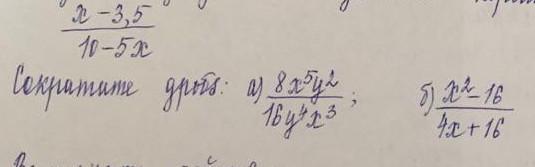 x - 3,5
10 - 5x
Сократите дробь: а) 8x⁵y² / 16y⁴x³ ; б) x² - 16 / 4x + 16